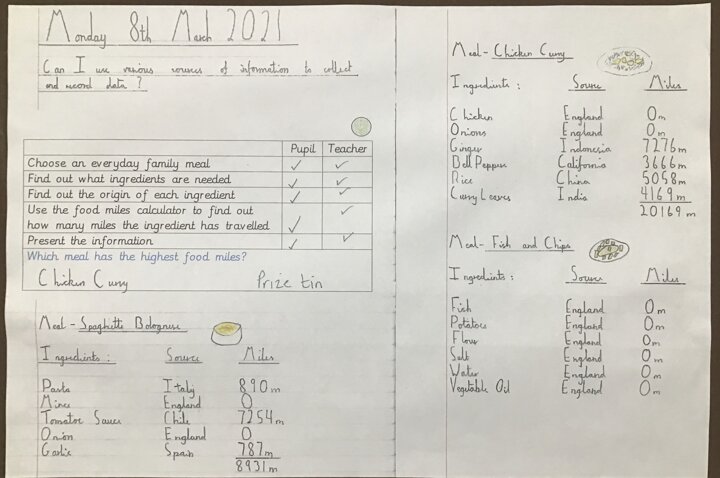 Monday 8th March 2021
Can I use various sources of information to collect
and record data ?
Pupil Teacher
Choose an everyday family meal
Find out what ingredients are needed
Find out the origin of each ingredient
Use the food miles calculator to find out
how many miles the ingredient has travelled
Present the information
Which meal has the highest food miles?
Chicken Curry Prize tin
Meal - Spaghetti Bolognese
Ingredients : Source Miles
Pasta Italy 890m
Mince England 0
Tomatoe Sauce Chile 7254m
Onion England 0
Garlic Spain 787m
8931m
Meal - Chicken Curry
Ingredients : Source Miles
Chicken England 0m
Onions England 0m
Ginger Indonesia 7276m
Bell Pepper California 3666m
Rice China 5058m
Curry Leaves India 4169m
20169m
Meal - Fish and Chips
Ingredients : Source Miles
Fish England 0m
Potatoes England 0m
Flour England 0m
Salt England 0m
Water England 0m
Vegetable Oil England 0m